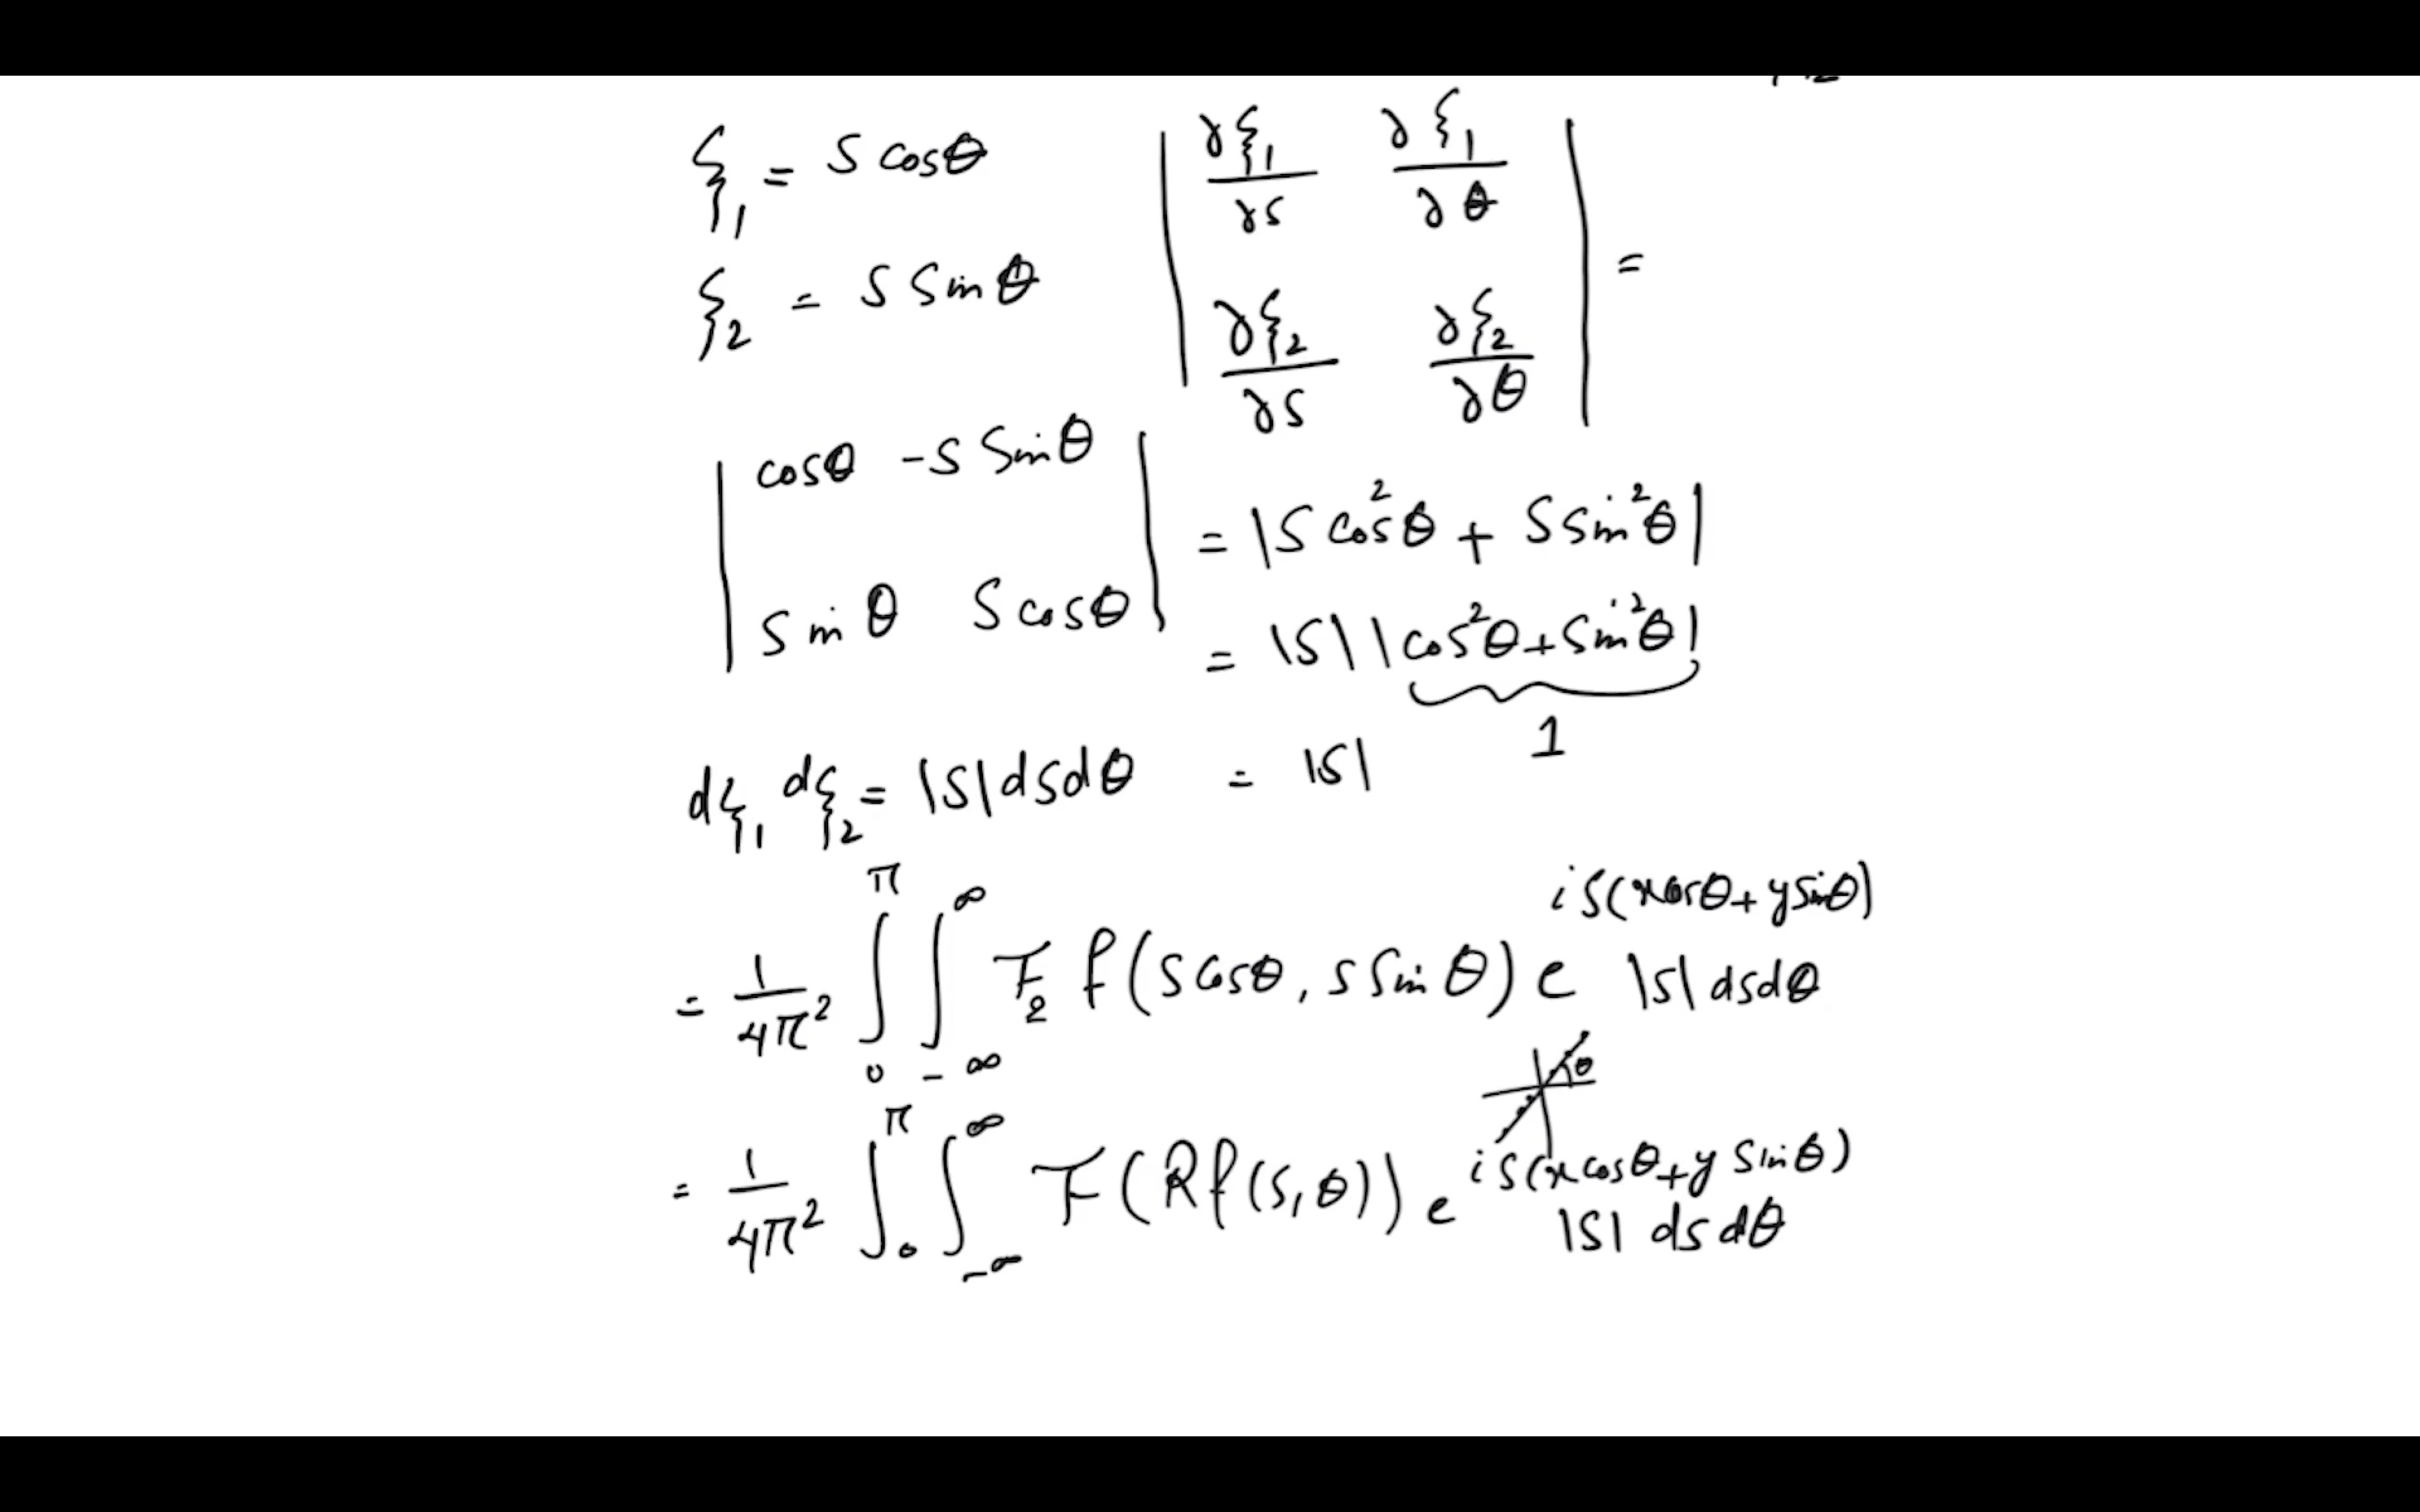 ξ₁ = S cosθ
ξ₂ = S Sinθ
| ∂ξ₁/∂S ∂ξ₁/∂θ |
| ∂ξ₂/∂S ∂ξ₂/∂θ | =
| cosθ -S Sinθ |
| Sinθ S cosθ |
= |S cos²θ + S Sin²θ|
= |S| |cos²θ + Sin²θ|
1
= |S|
dξ₁ dξ₂ = |S| dS dθ
= 1/4π² ∫₀^π ∫_{-∞}^∞ F₂ f(S cosθ, S Sinθ) e^{iS(x cosθ + y Sinθ)} |S| dS dθ
θ
= 1/4π² ∫₀^π ∫_{-∞}^∞ F(Rf(S, θ)) e^{iS(x cosθ + y Sinθ)} |S| dS dθ